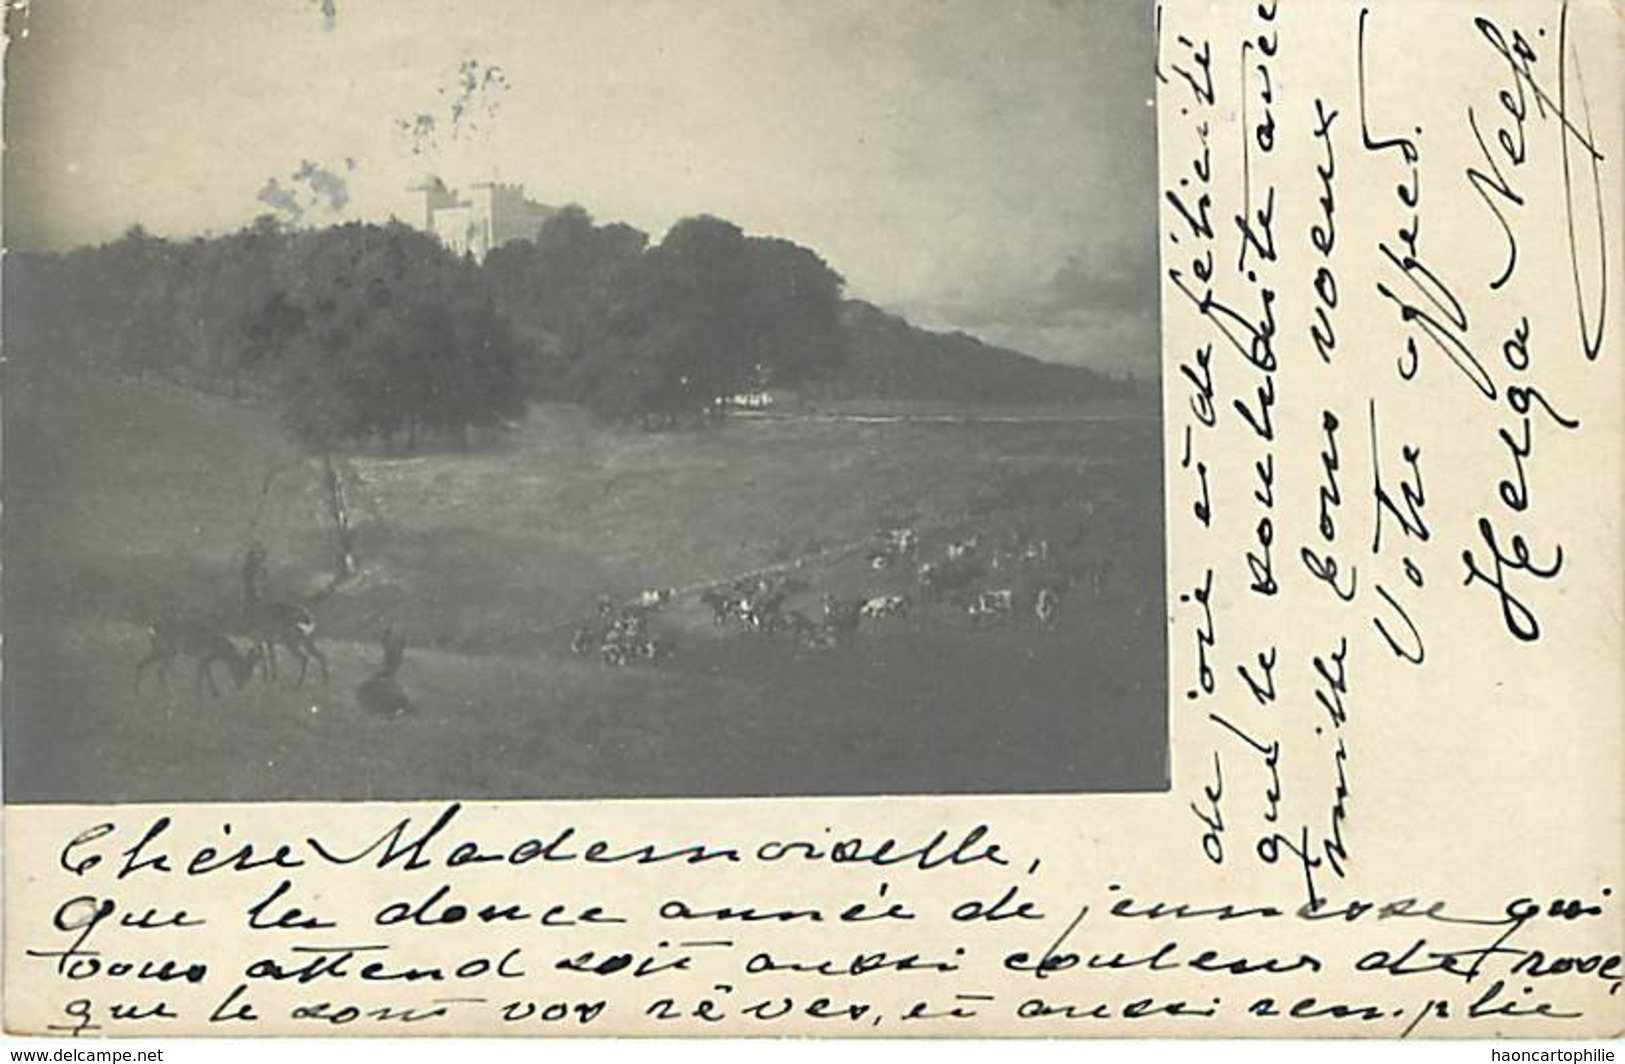 Chère Mademoiselle,
que la douce année de jeunesse qui
vous attend soit aussi couleur de rose,
que le sont vos rêves, et aussi remplie
de joie et de félicité
que le souhaite avec
mille bons voeux
Votre affned.
Helga
www.delcampe.net
haoncartophilie